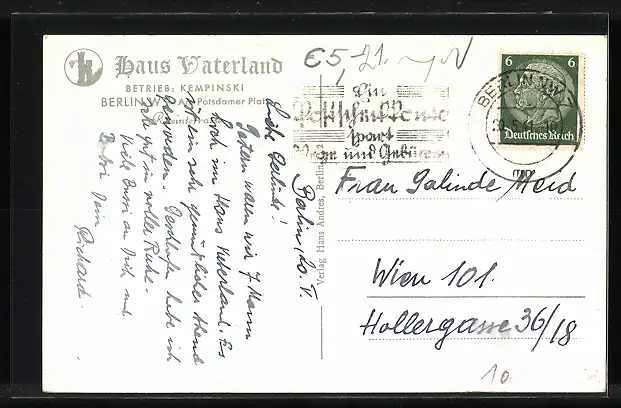 Haus Vaterland
BETRIEB: KEMPINSKI
BERLIN W 9, Am Potsdamer Platz
Rheinterrasse
€5,-
21.
Ein
Postscheckkonto
spart
Wege und Gebühren
BERLIN NW 7
6 6
Deutsches Reich
Berlin, 20. V.
Liebe Galinde!
Gestern waren wir 7 Mann
hoch im Haus Vaterland. Es
ist ein sehr gemütlicher Abend
geworden. Geschlafen habe ich
sehr gut in voller Ruhe.
Viele Bussi an Dich und
Bussi Dein Richard.
Verlag Hans Andres, Berlin
Frau Galinde
Wien 101.
Hollergasse 36/18
10